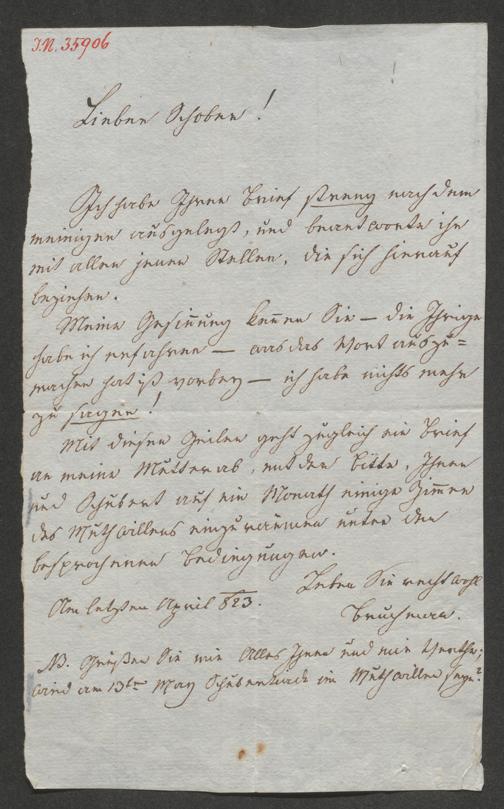 I.N. 35906
Lieber Schober!
Ich habe Ihren Brief streng nach dem
meinigen ausgelegt, und beantworte ihn
mit allen jenen Stellen, die sich hierauf
beziehen.
Meine Gesinnung kennen Sie — die Ihrige
habe ich erfahren — was das Wort auszu=
machen hat ist vorbey — ich habe nichts mehr
zu sagen!
Mit diesen Zeilen geht zugleich ein Brief
an meine Mutter ab, mit der Bitte, Ihnen
und Schubert auf ein Monath einige Zimmer
des Muthwillens einzuräumen unter den
besprochenen Bedingungen.
Leben Sie recht wohl
Am letzten April 823.
Bruchmann.
NB. Grüßen Sie mir Alles Ihnen und mir Werthe;
wird am 13ten May Schubert in Muthwillen seyn?